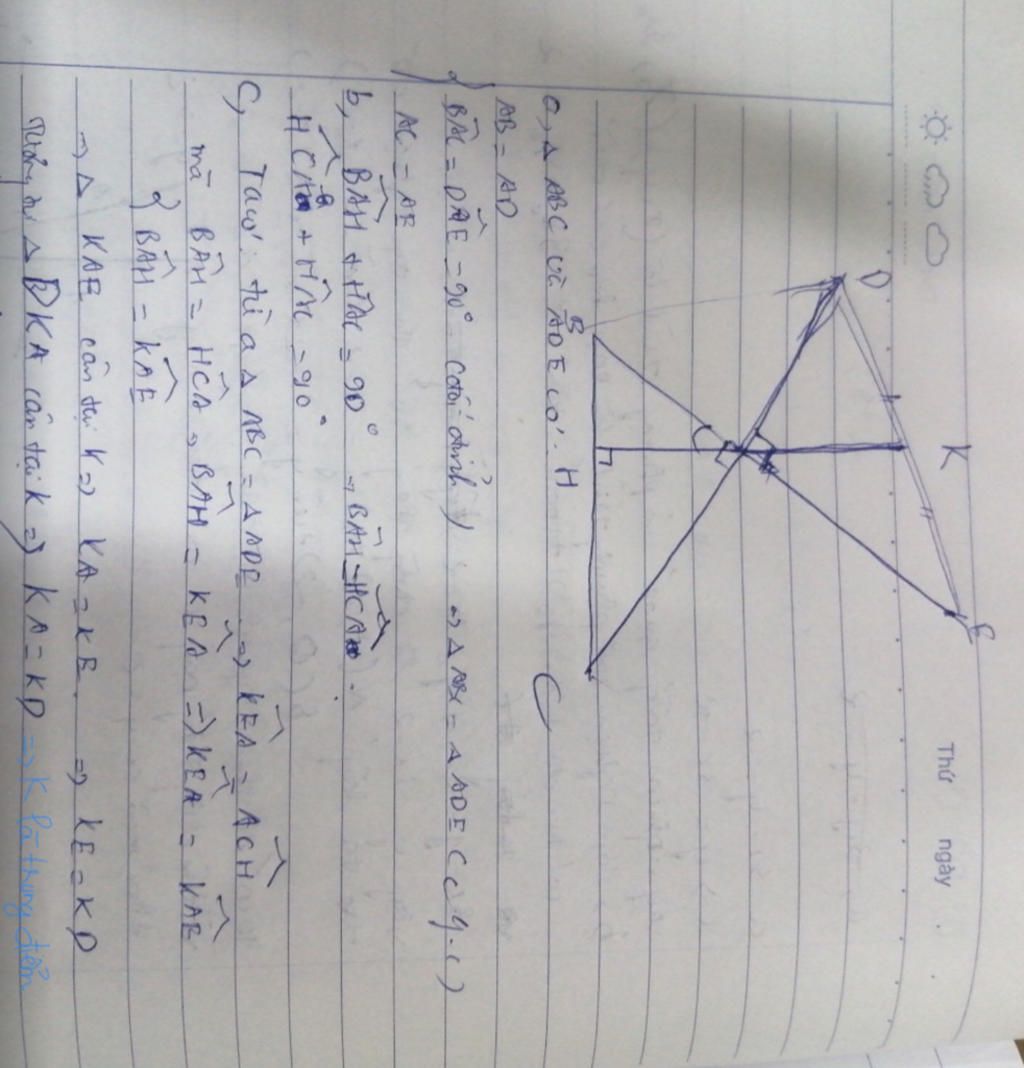 Thứ ngày
D K E
B H C
a, Δ ABC và ADE có:
AB = AD
BAĈ = DAÊ = 90° (đối đỉnh) => Δ ABC = Δ ADE (c.g.c)
AC = AE
b, BAH + HAC = 90° => BAH = HCA
HCA + HAC = 90°
c, Ta có: từ a Δ ABC = Δ ADE => KEA = ACH
mà BAH = HCA => BAH = KEA => KEA = KAE
BAH = KAE
=> Δ KAE cân tại K => KA = KE. => KE = KD
Tương tự Δ DKA cân tại K => KA = KD => K là trung điểm